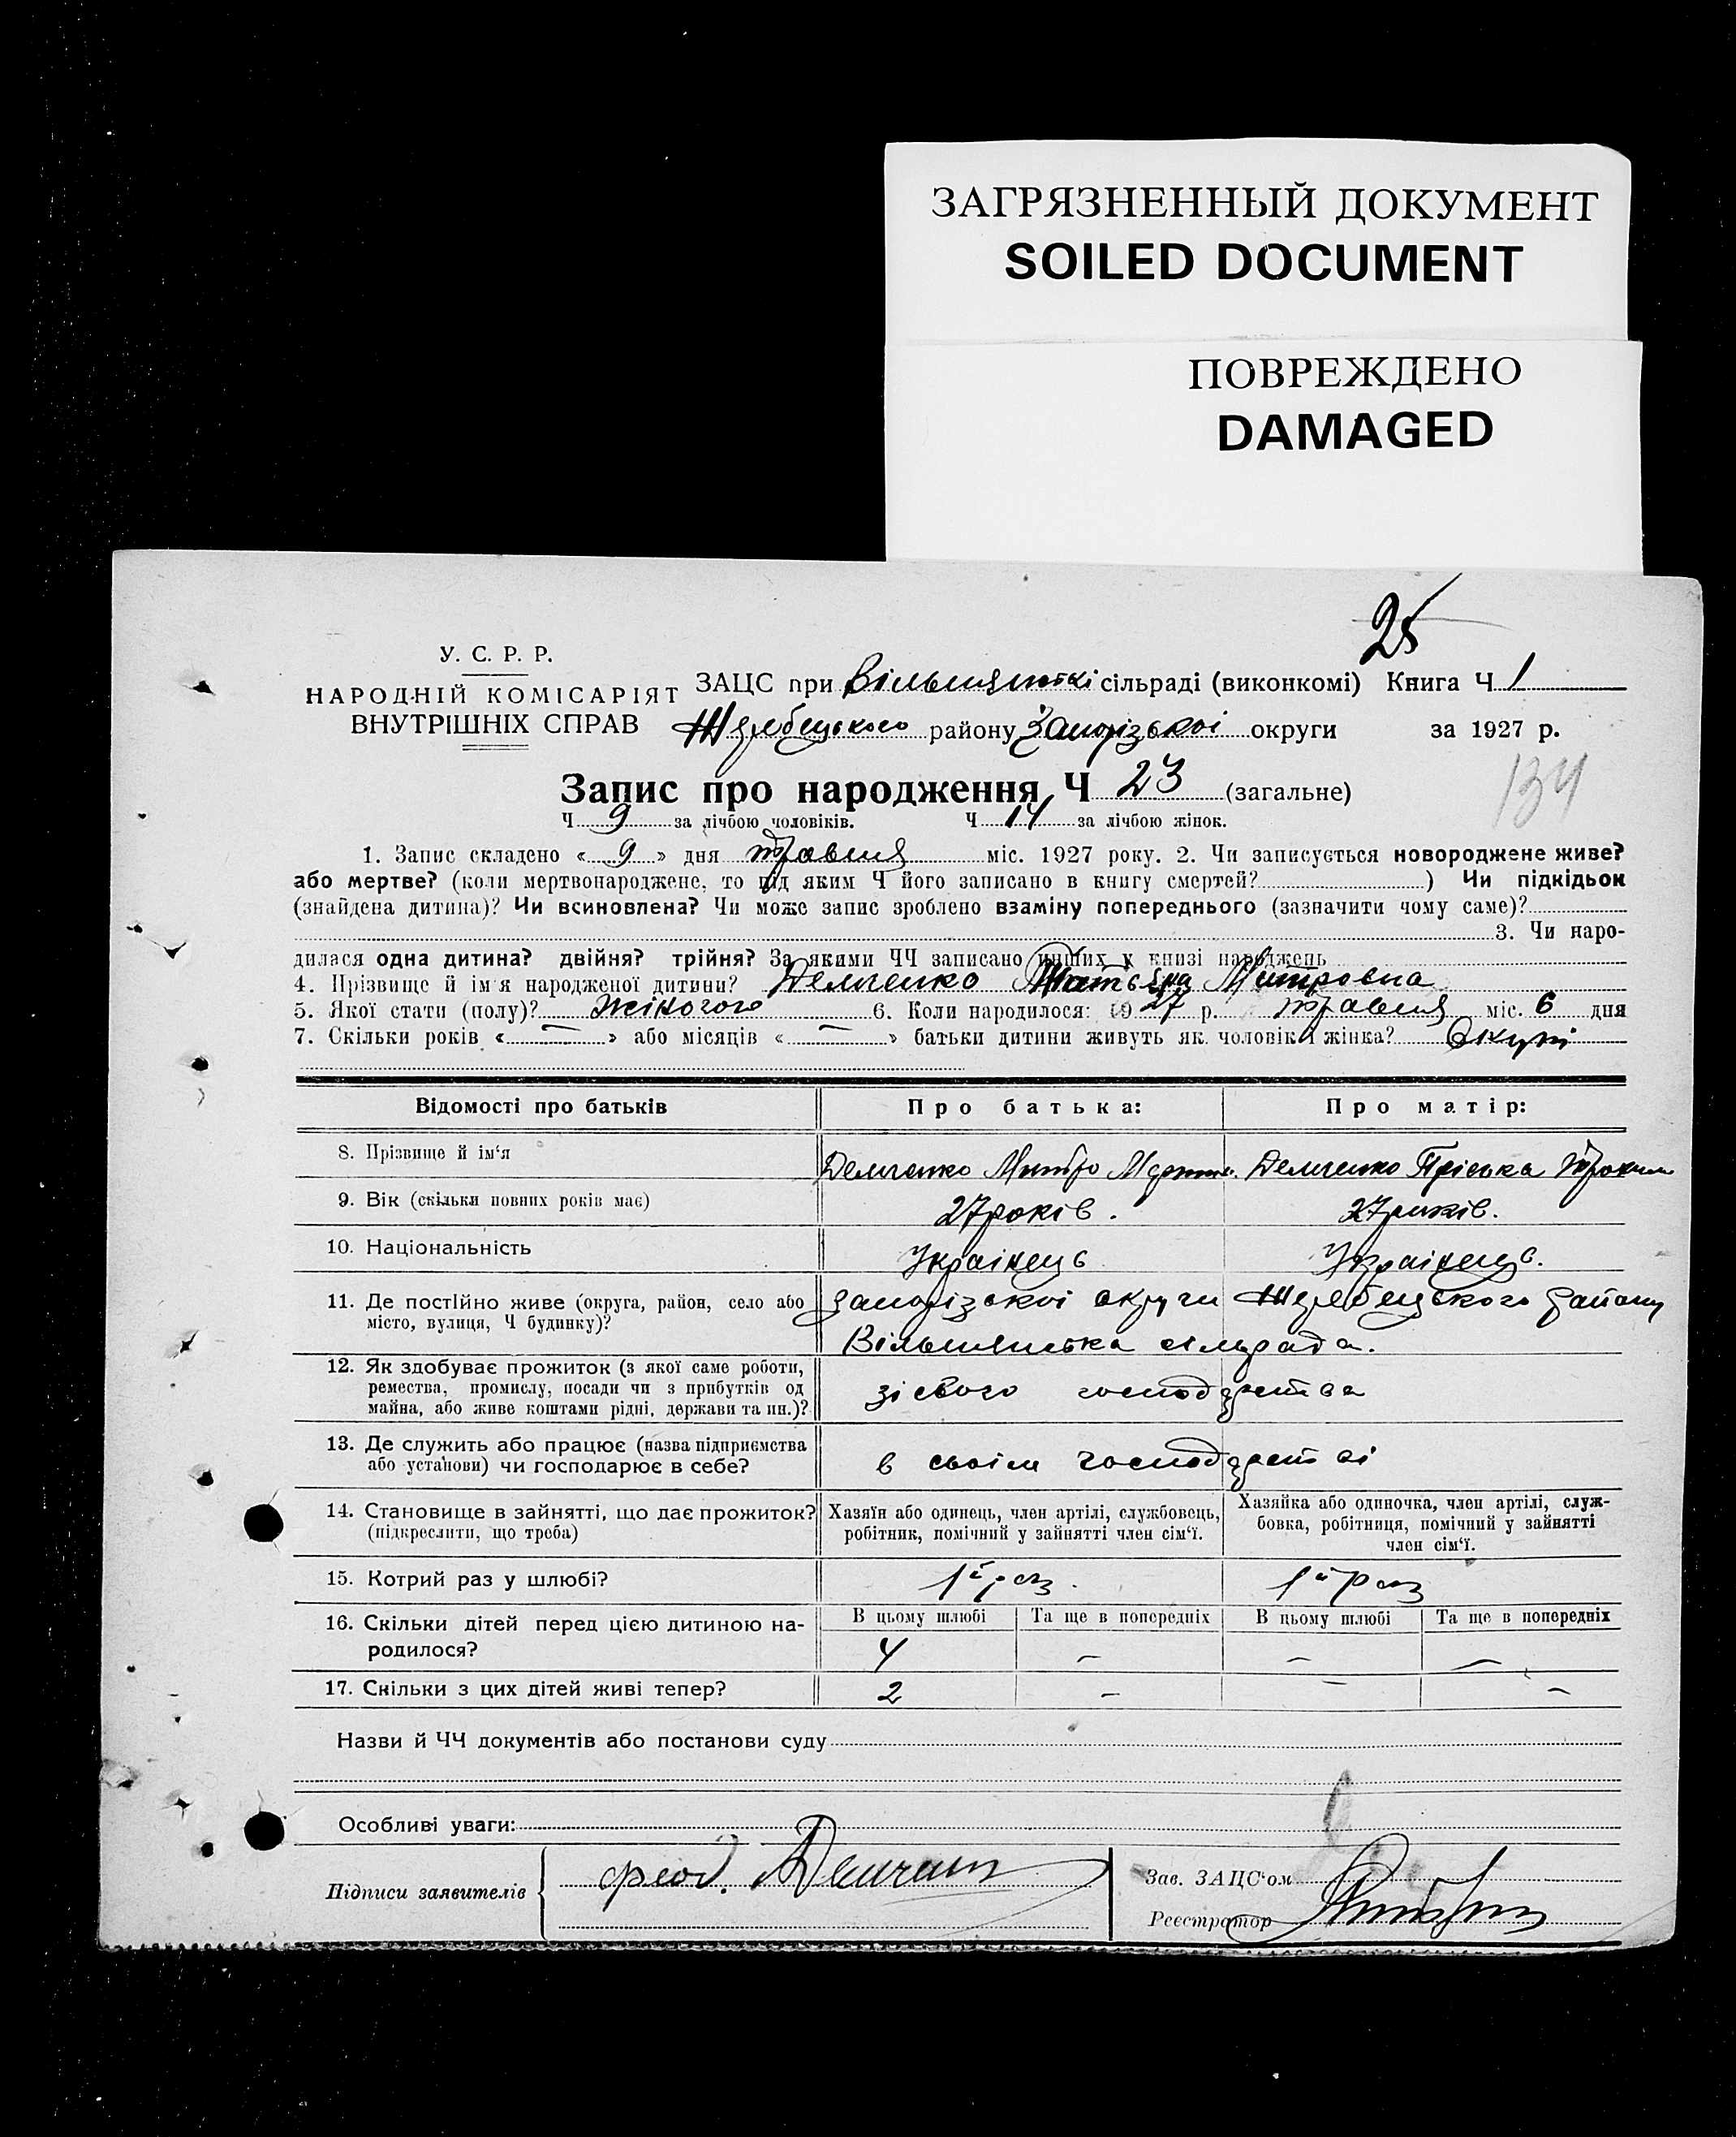 ЗАГРЯЗНЕННЫЙ ДОКУМЕНТ
SOILED DOCUMENT
ПОВРЕЖДЕНО
DAMAGED
25
У. С. Р. Р.
НАРОДНІЙ КОМІСАРІЯТ
ВНУТРІШНІХ СПРАВ
ЗАЦС при сільраді (виконкомі) Книга Ч 1
Жеребецького району Запорізькоі округи за 1927 р.
134
Запис про народження Ч 23 (загальне)
Ч 9 за лічбою чоловіків. Ч 14 за лічбою жінок.
1. Запис складено « 9 » дня травня міс. 1927 року. 2. Чи записується новороджене живе?
або мертве? (коли мертвонароджене, то під яким Ч його записано в книгу смертей? ) Чи підкідьок
(знайдена дитина)? Чи всиновлена? Чи може запис зроблено взаміну попереднього (зазначити чому саме)?
3. Чи наро-
дилася одна дитина? двійня? трійня? За якими ЧЧ записано инших у книзі народжень
4. Прізвище й ім'я народженої дитини? Демченко Татьяна Митровна
5. Якої стати (полу)? Жіночого 6. Коли народилося: 1927 р. травня міс. 6 дня
7. Скільки років « — » або місяців « — » батьки дитини живуть як чоловік і жінка?
Відомості про батьків
Про батька:
Про матір:
8. Прізвище й ім'я Демченко Митро Демченко Пріська
9. Вік (скільки повних років має) 27 років. 27 років.
10. Національність Украінець Украінець.
11. Де постійно живе (округа, район, село або Запорізькоі округи Жеребецького району
місто, вулиця, Ч будинку)? Вільнянська сільрада.
12. Як здобуває прожиток (з якої саме роботи,
ремества, промислу, посади чи з прибутків од зі свого господарства
майна, або живе коштами рідні, держави та ин.)?
13. Де служить або працює (назва підприємства в своім господарстві
або установи) чи господарює в себе?
14. Становище в зайнятті, що дає прожиток?
(підкреслити, що треба)
Хазяїн або одинець, член артілі, службовець,
робітник, помічний у зайнятті член сім'ї.
Хазяйка або одиночка, член артілі, служ-
бовка, робітниця, помічний у зайнятті
член сім'ї.
15. Котрий раз у шлюбі? 1й раз. 1й раз
16. Скільки дітей перед цією дитиною на-
родилося?
В цьому шлюбі Та ще в попередніх В цьому шлюбі Та ще в попередніх
4 — — —
17. Скільки з цих дітей живі тепер? 2 — — —
Назви й ЧЧ документів або постанови суду
Особливі уваги:
Підписи заявителів
Зав. ЗАЦС'ом
Реєстратор